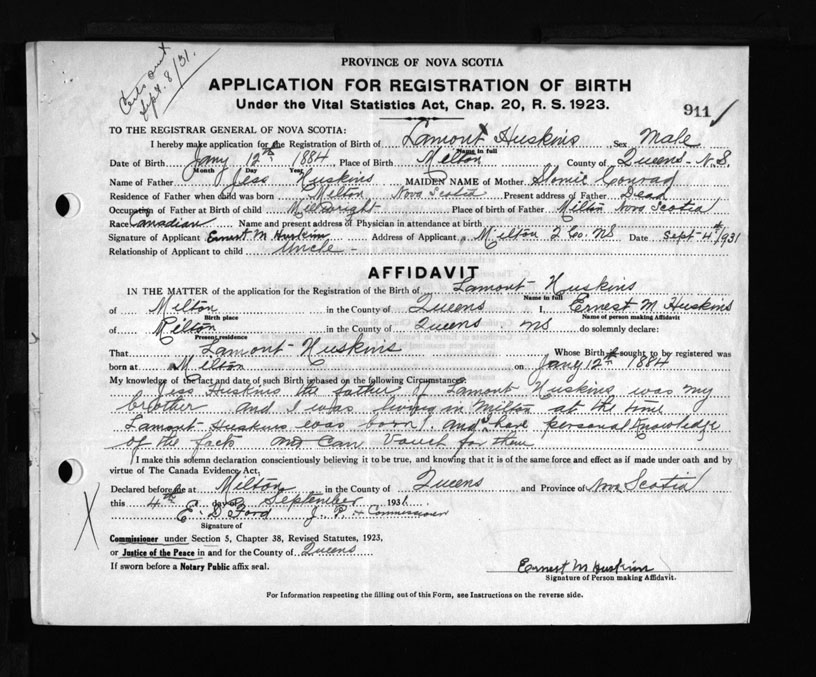 Certs out
Sept. 8/31.
PROVINCE OF NOVA SCOTIA
APPLICATION FOR REGISTRATION OF BIRTH
Under the Vital Statistics Act, Chap. 20, R. S. 1923.
911
TO THE REGISTRAR GENERAL OF NOVA SCOTIA:
I hereby make application for the Registration of Birth of Lamont Huskins Sex Male
Name in full
Date of Birth Jany 12th 1884 Place of Birth Milton County of Queens - N.S.
Month Day Year
Name of Father Jess Huskins MAIDEN NAME of Mother Conrad
Residence of Father when child was born Milton Nova Scotia Present address of Father Dead
Occupation of Father at Birth of child Millwright Place of birth of Father Milton Nova Scotia
Race Canadian Name and present address of Physician in attendance at birth
Signature of Applicant Ernest M Huskins Address of Applicant Milton Q Co. NS Date Sept-4th/1931
Relationship of Applicant to child Uncle -
AFFIDAVIT
IN THE MATTER of the application for the Registration of the Birth of Lamont - Huskins
Name in full
of Milton in the County of Queens I, Ernest M Huskins
Birth place Name of person making Affidavit
of Milton in the County of Queens NS do solemnly declare:
Present residence
That Lamont - Huskins Whose Birth is sought to be registered was
born at Milton on Jany 12th 1884
My knowledge of the fact and date of such Birth is based on the following Circumstances:
Jess Huskins the father of Lamont Huskins was my
brother and I was living in Milton at the time
Lamont - Huskins was born and had personal knowledge
of the facts and can vouch for them
I make this solemn declaration conscientiously believing it to be true, and knowing that it is of the same force and effect as if made under oath and by
virtue of The Canada Evidence Act,
Declared before me at Milton in the County of Queens and Province of Nova Scotia
this 4th day of September 1931
E. D Ford J. P. + Commissioner
Signature of
Commissioner under Section 5, Chapter 38, Revised Statutes, 1923,
or Justice of the Peace in and for the County of Queens
If sworn before a Notary Public affix seal.
Ernest M Huskins
Signature of Person making Affidavit.
For Information respecting the filling out of this Form, see Instructions on the reverse side.